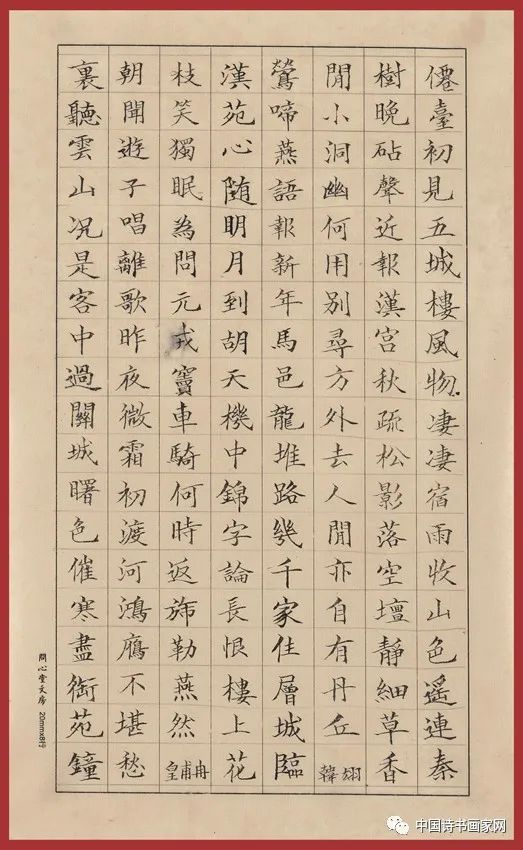 僊臺初見五城樓風物淒淒宿雨收山色遥連秦
樹晚砧聲近報漢宮秋疏松影落空壇靜細草香
閒小洞幽何用別尋方外去人間亦自有丹丘 韓翃
鶯啼燕語報新年馬邑龍堆路幾千家住層城臨
漢苑心随明月到胡天機中錦字論長恨樓上花
枝笑獨眠為問元戎竇車騎何時返斾勒燕然 皇甫冉
朝聞遊子唱離歌昨夜微霜初渡河鴻鴈不堪愁
裏聽雲山况是客中過關城曙色催寒盡御苑鐘
問心堂文房 20mm8行
中国诗书画家网